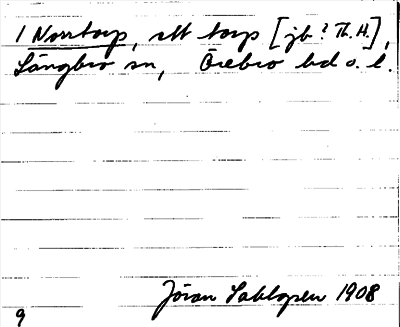 1 Norrtorp, ett torp [jb? Th. H.],
Längbro sn, Örebro hd o. l.
Jöran Sahlgren 1908
9